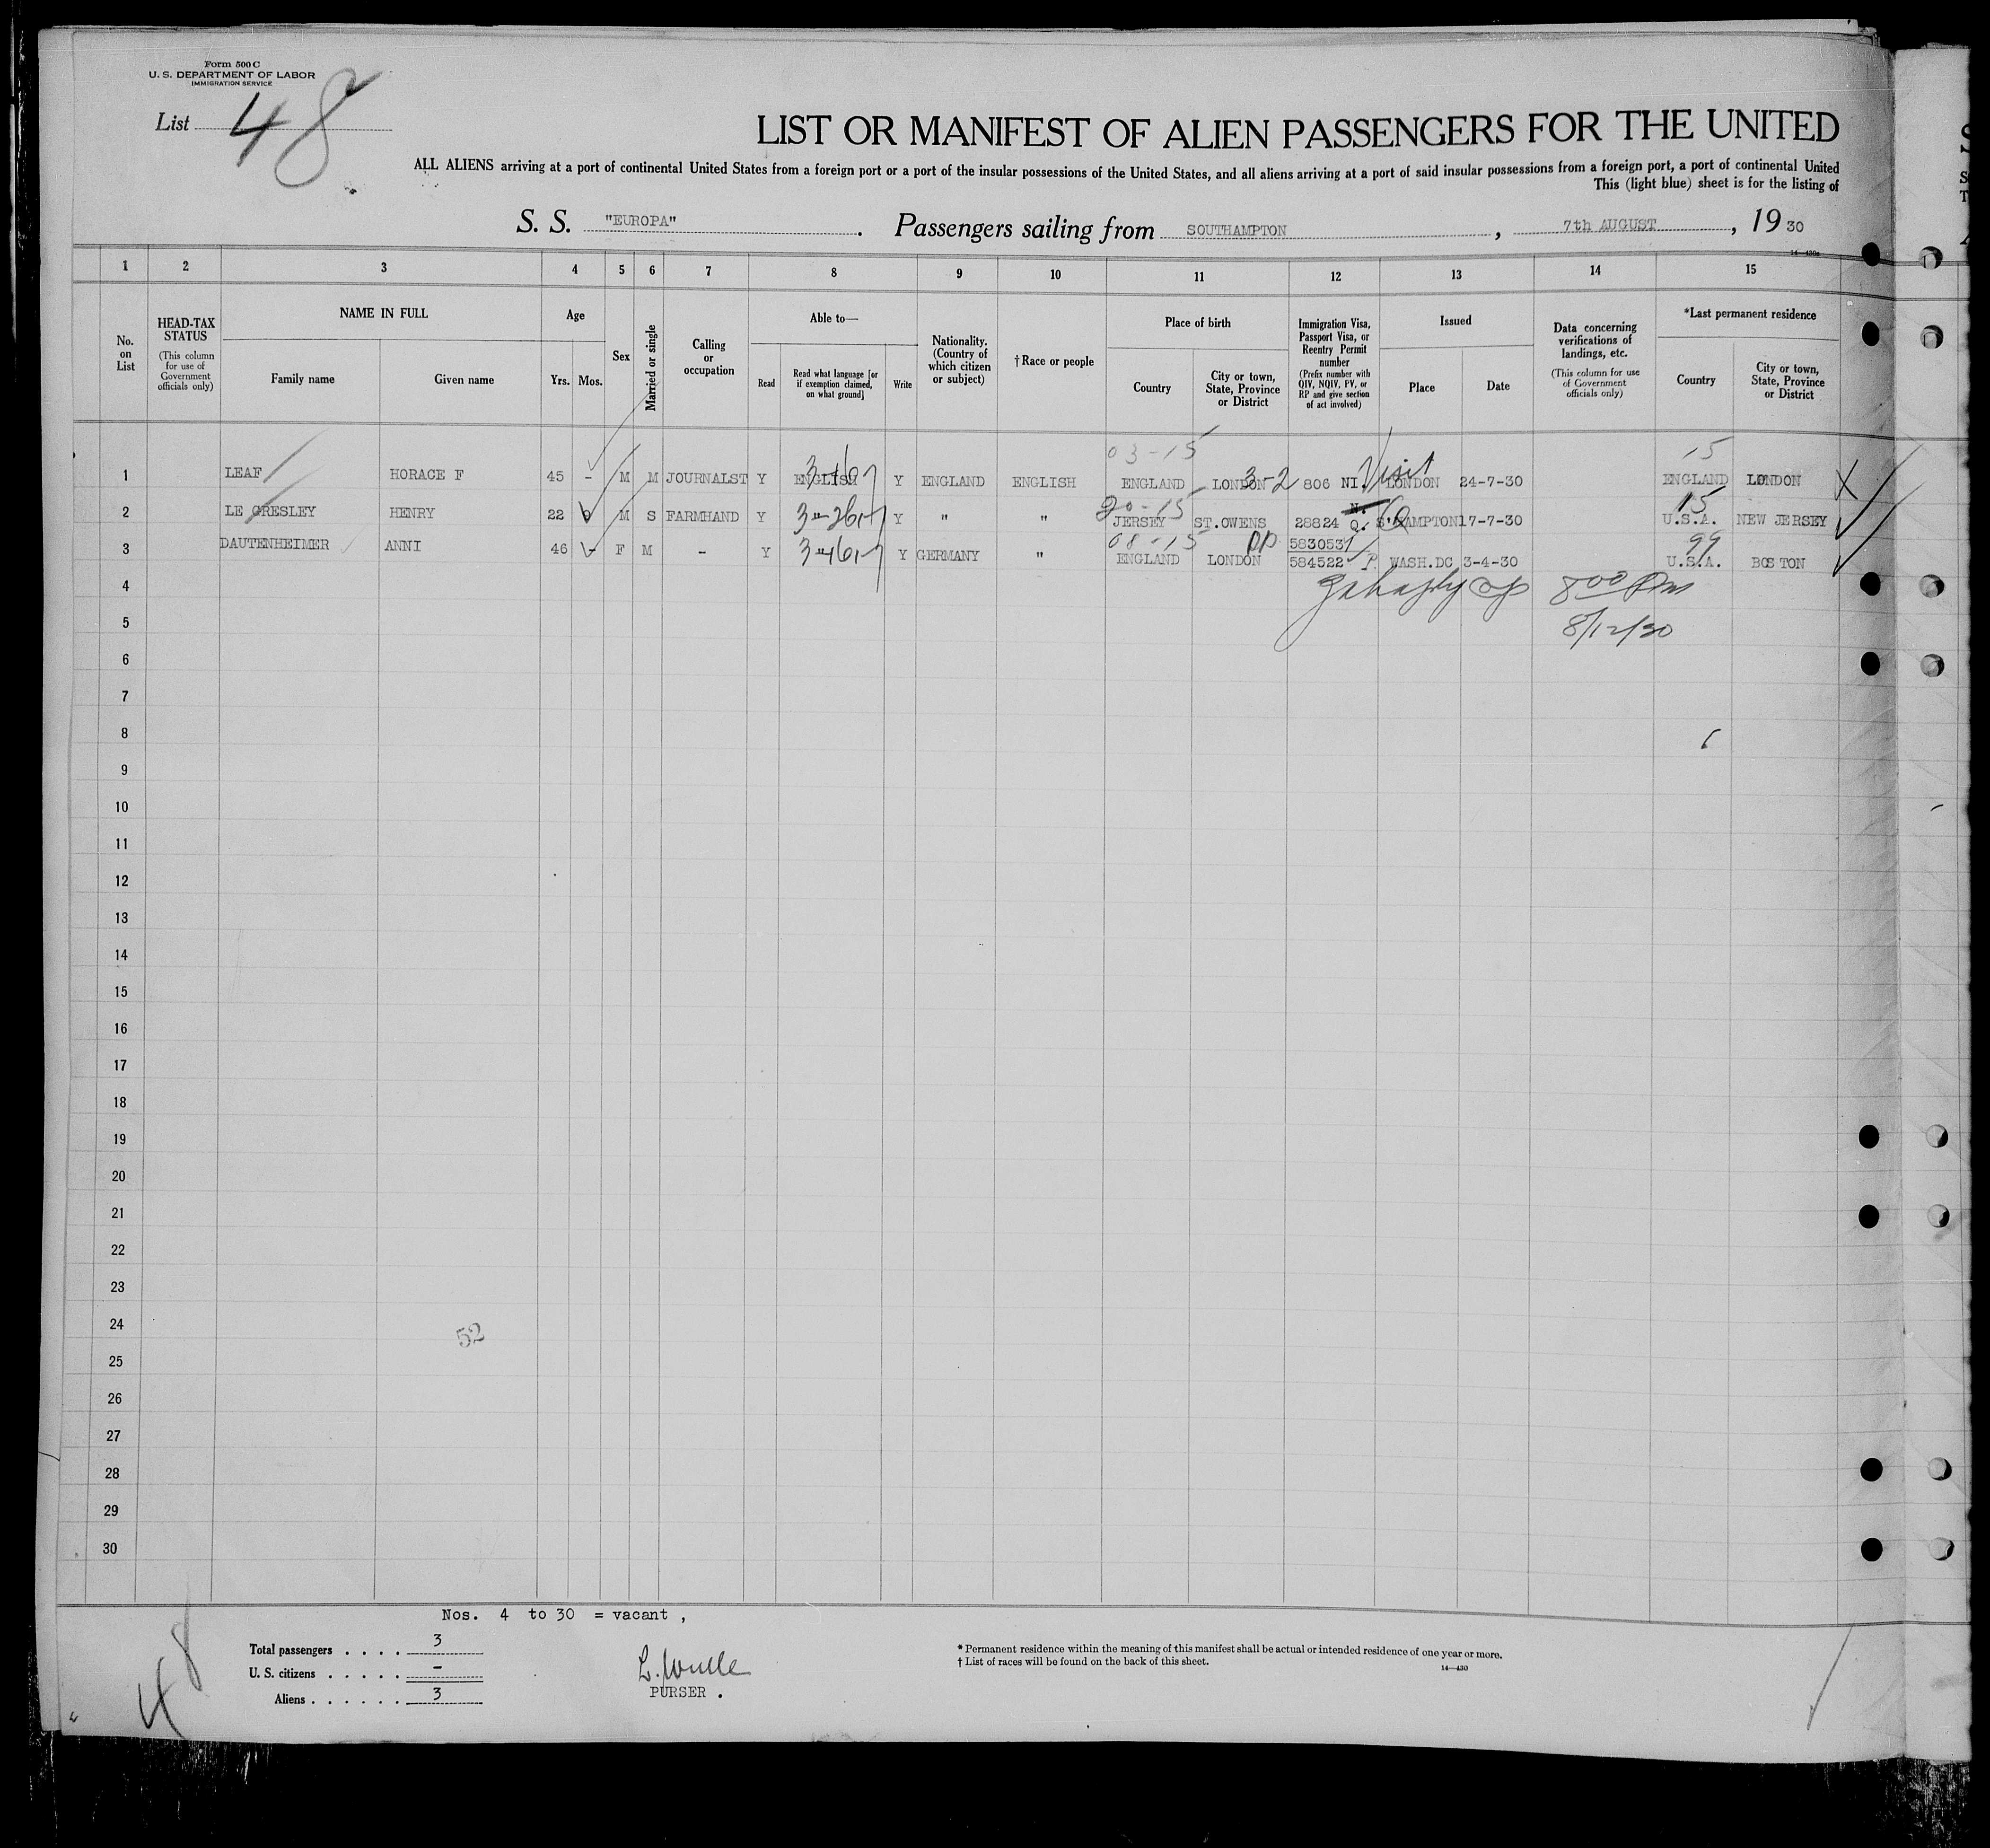 Form 500 C
U. S. DEPARTMENT OF LABOR
IMMIGRATION SERVICE
List 48
LIST OR MANIFEST OF ALIEN PASSENGERS FOR THE UNITED
ALL ALIENS arriving at a port of continental United States from a foreign port or a port of the insular possessions of the United States, and all aliens arriving at a port of said insular possessions from a foreign port, a port of continental United
This (light blue) sheet is for the listing of
S. S. "EUROPA". Passengers sailing from SOUTHAMPTON, 7th AUGUST, 1930
14—430a
1 2 3 4 5 6 7 8 9 10 11 12 13 14 15
No. on List
HEAD-TAX STATUS (This column for use of Government officials only)
NAME IN FULL
Family name Given name
Age
Yrs. Mos.
Sex
Married or single
Calling or occupation
Able to—
Read Read what language [or if exemption claimed, on what ground] Write
Nationality. (Country of which citizen or subject)
† Race or people
Place of birth
Country City or town, State, Province or District
Immigration Visa, Passport Visa, or Reentry Permit number (Prefix number with QIV, NQIV, PV, or RP and give section of act involved)
Issued
Place Date
Data concerning verifications of landings, etc. (This column for use of Government officials only)
*Last permanent residence
Country City or town, State, Province or District
03-15 15
1 LEAF HORACE F 45 - M M JOURNALST Y ENGLISH Y ENGLAND ENGLISH ENGLAND LONDON 3-2 806 NI. Visit LONDON 24-7-30 ENGLAND LONDON
20-15 15
2 LE GRESLEY HENRY 22 M S FARMHAND Y Y " " JERSEY ST.OWENS 28824 Q. S'HAMPTON 17-7-30 U.S.A. NEW JERSEY
08-15 583053 99
3 DAUTENHEIMER ANNI 46 - F M - Y Y GERMANY " ENGLAND LONDON 584522 P. WASH.DC 3-4-30 U.S.A. BOSTON
4 8 00 Pm
5 8/12/30
6
7
8
9
10
11
12
13
14
15
16
17
18
19
20
21
22
23
24 52
25
26
27
28
29
30
Nos. 4 to 30 = vacant,
Total passengers . . . . 3
U. S. citizens . . . . . -
Aliens . . . . . . 3
PURSER .
* Permanent residence within the meaning of this manifest shall be actual or intended residence of one year or more.
† List of races will be found on the back of this sheet.
14—430
48